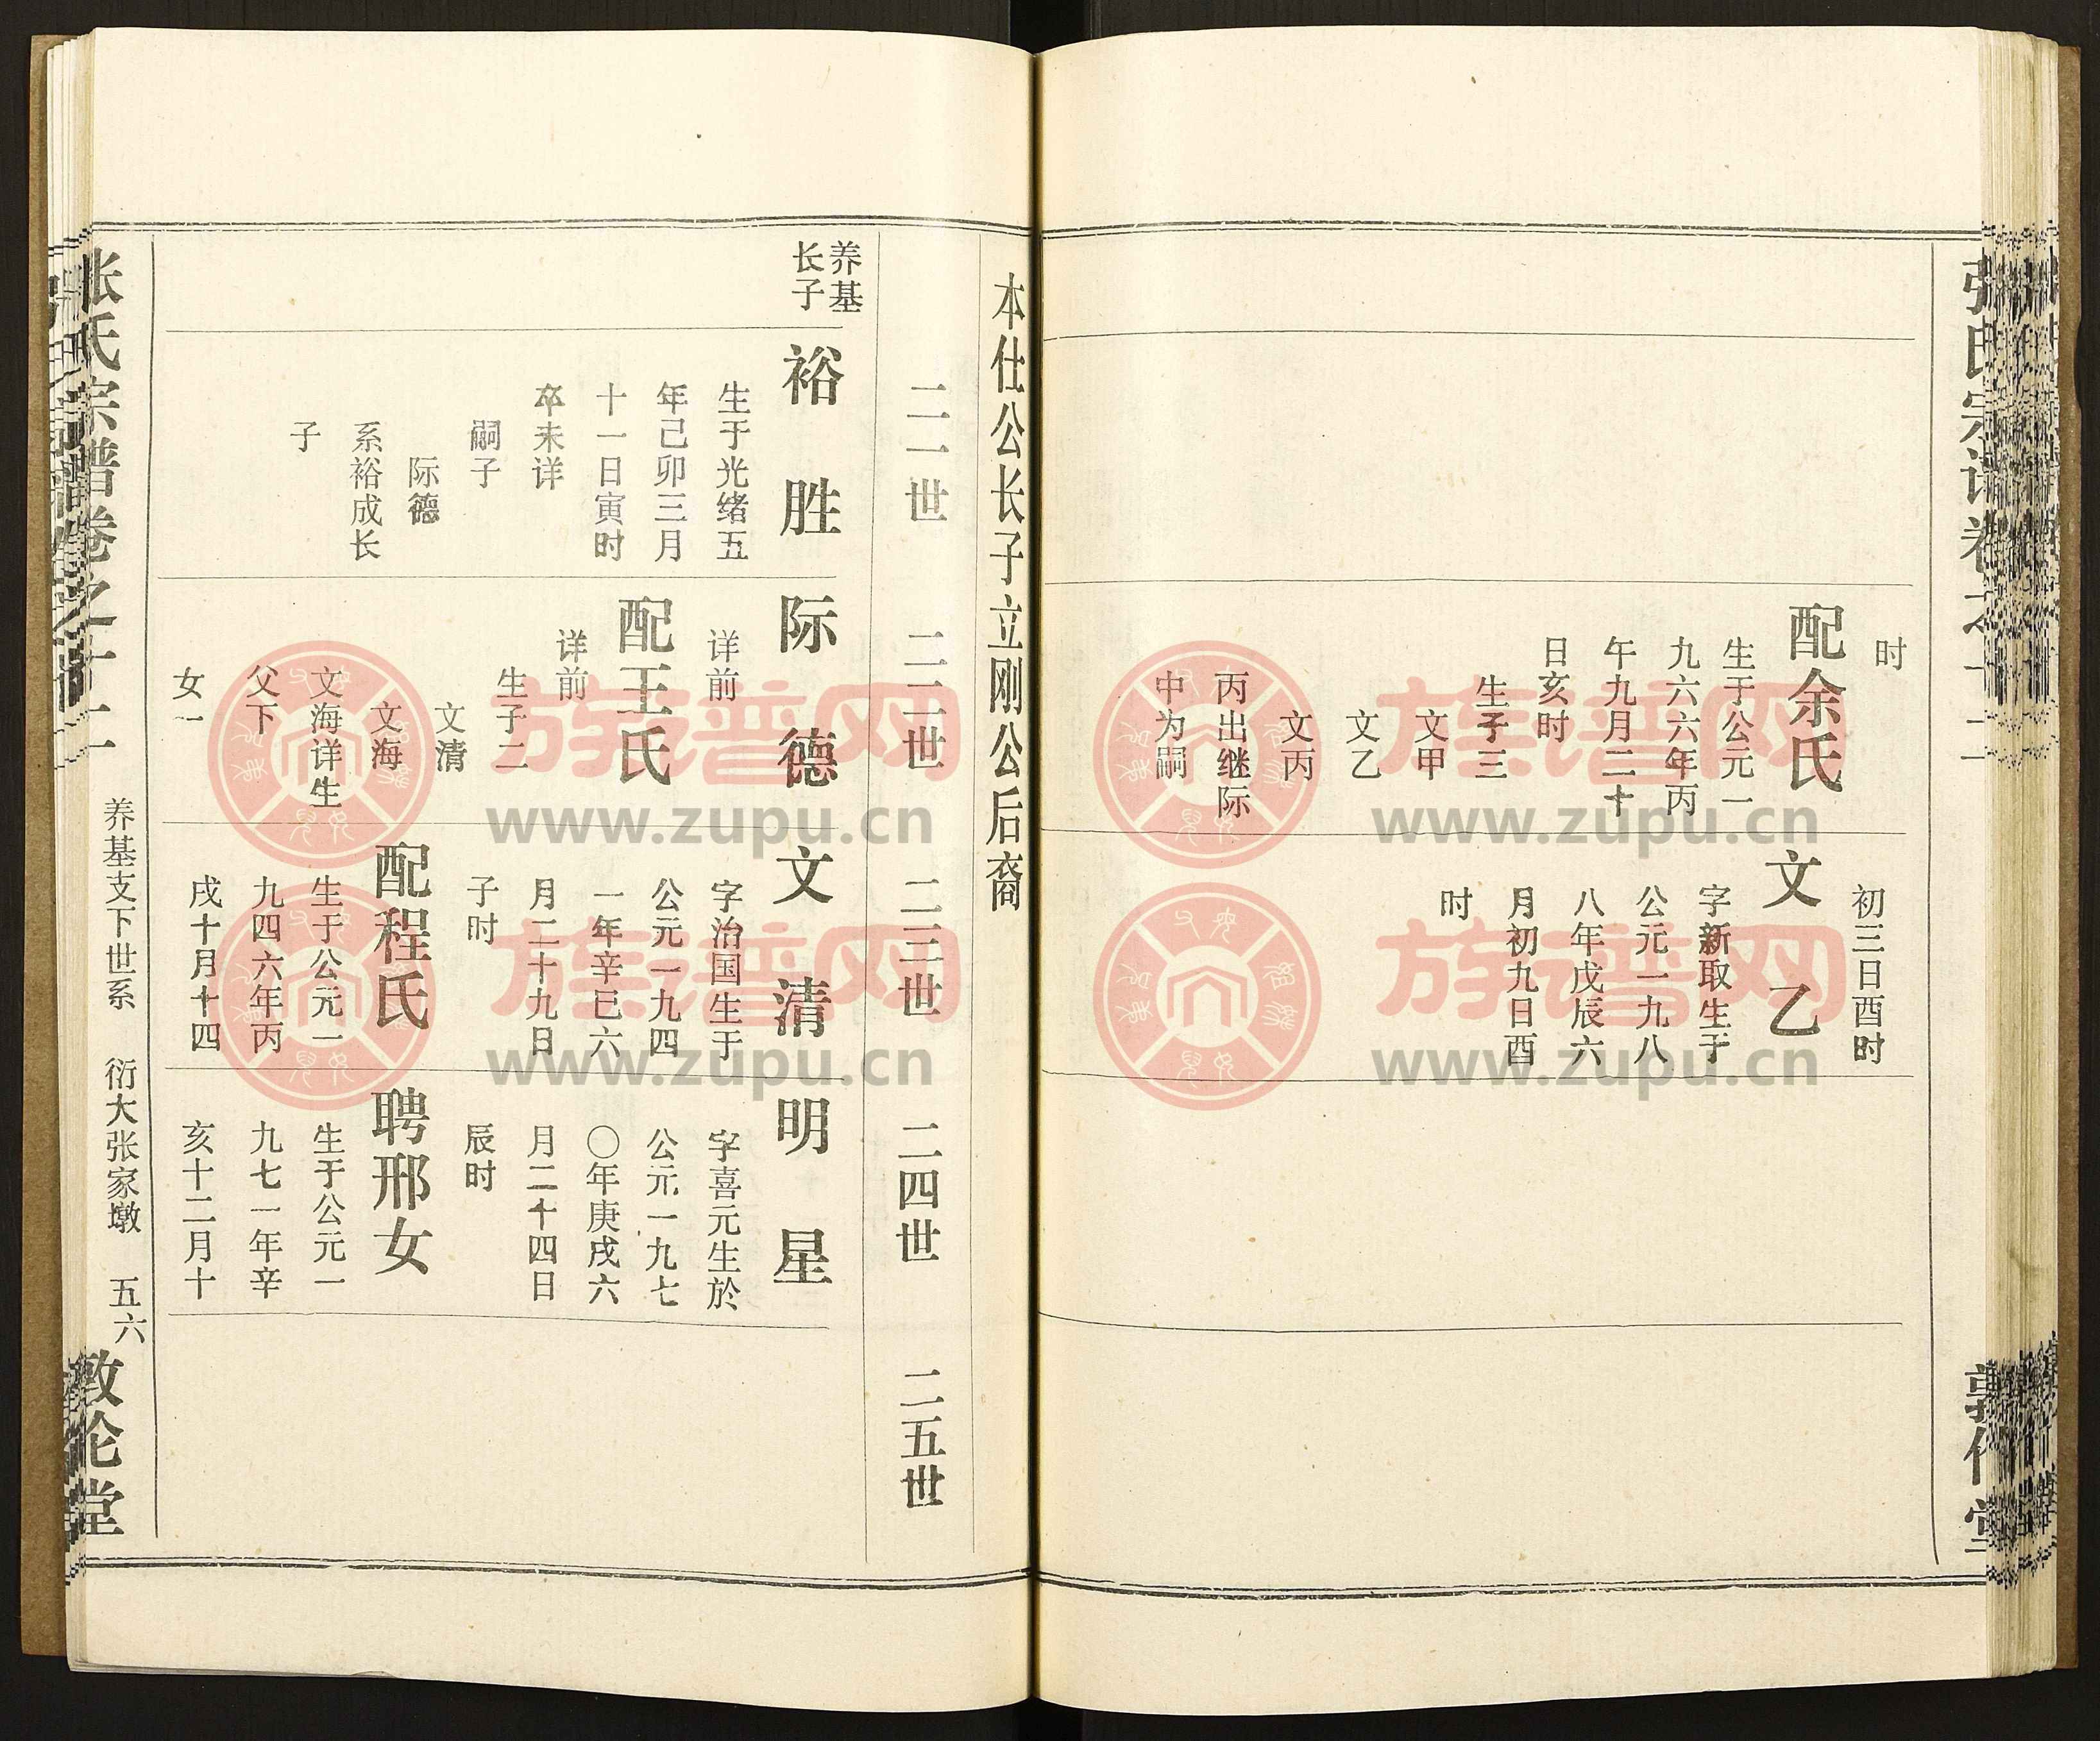 张氏宗谱卷之十二
敦伦堂
时
配余氏
生于公元一
九六六年丙
午九月二十
日亥时
生子三
文甲
文乙
文丙
丙出继际
中为嗣
初三日酉时
文乙
字新取生于
公元一九八
八年戊辰六
月初九日酉
时
本仕公长子立刚公后裔
二一世
二二世
二三世
二四世
二五世
养基
长子
裕胜
生于光绪五
年己卯三月
十一日寅时
卒未详
嗣子
际德
系裕成长
子
际德
详前
配王氏
详前
生子二
文清
文海
文海详生
父下
女一
文清
字治国生于
公元一九四
一年辛巳六
月二十九日
子时
配程氏
生于公元一
九四六年丙
戌十月十四
明星
字喜元生於
公元一九七
〇年庚戌六
月二十四日
辰时
聘邢女
生于公元一
九七一年辛
亥十二月十
张氏宗谱卷之十二
养基支下世系
衍大张家墩
五六
敦伦堂
族谱网
www.zupu.cn
族谱网
www.zupu.cn
族谱网
www.zupu.cn
族谱网
www.zupu.cn